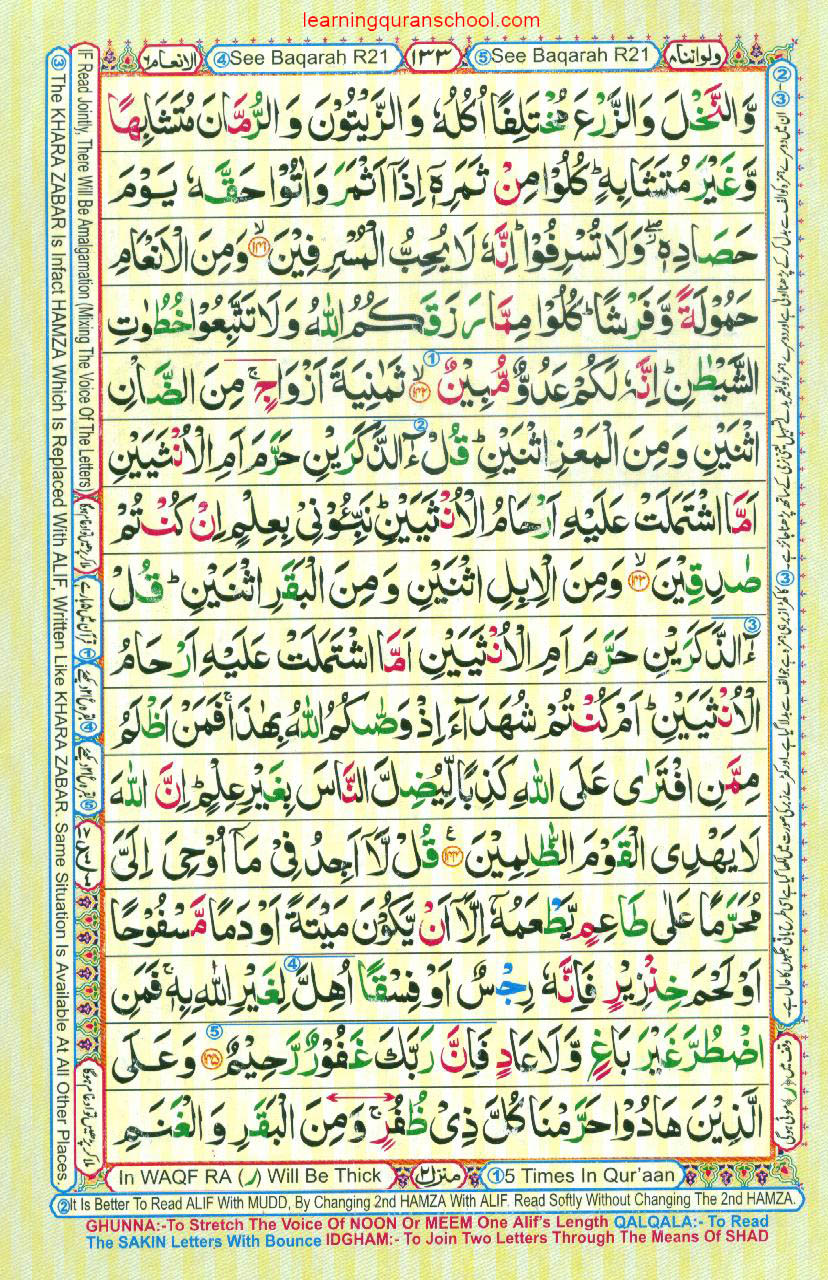 learningquranschool.com
ولواننا٨
⑤See Baqarah R21
١٣٣
④See Baqarah R21
الانعام٦
وَّالنَّخْلَ وَالزَّرْعَ مُخْتَلِفًا اُكُلُهٗ وَالزَّيْتُوْنَ وَالرُّمَّانَ مُتَشَابِهًا
وَّغَيْرَ مُتَشَابِهٍؕ كُلُوْا مِنْ ثَمَرِهٖۤ اِذَاۤ اَثْمَرَ وَاٰتُوْا حَقَّهٗ يَوْمَ
حَصَادِهٖ ۖؗ وَلَا تُسْرِفُوْاؕ اِنَّهٗ لَا يُحِبُّ الْمُسْرِفِيْنَۙ‏﴿۱۴۱﴾ وَمِنَ الْاَنْعَامِ
حَمُوْلَةً وَّفَرْشًاؕ كُلُوْا مِمَّا رَزَقَكُمُ اللّٰهُ وَلَا تَتَّبِعُوْا خُطُوٰتِ
الشَّيْطٰنِؕ اِنَّهٗ لَكُمْ عَدُوٌّ مُّبِيْنٌۙ‏﴿۱۴۲﴾ ثَمٰنِيَةَ اَزْوَاجٍۚ مِنَ الضَّاْنِ
اثْنَيْنِ وَمِنَ الْمَعْزِ اثْنَيْنِؕ قُلْ ءٰٓالذَّكَرَيْنِ حَرَّمَ اَمِ الْاُنْثَيَيْنِ
اَمَّا اشْتَمَلَتْ عَلَيْهِ اَرْحَامُ الْاُنْثَيَيْنِؕ نَبِّـُٔوْنِىْ بِعِلْمٍ اِنْ كُنْتُمْ
صٰدِقِيْنَۙ‏﴿۱۴۳﴾ وَمِنَ الْاِبِلِ اثْنَيْنِ وَمِنَ الْبَقَرِ اثْنَيْنِؕ قُلْ
ءٰٓالذَّكَرَيْنِ حَرَّمَ اَمِ الْاُنْثَيَيْنِ اَمَّا اشْتَمَلَتْ عَلَيْهِ اَرْحَامُ
الْاُنْثَيَيْنِؕ اَمْ كُنْتُمْ شُهَدَآءَ اِذْ وَصّٰكُمُ اللّٰهُ بِهٰذَاۚ فَمَنْ اَظْلَمُ
مِمَّنِ افْتَرٰى عَلَى اللّٰهِ كَذِبًا لِّيُضِلَّ النَّاسَ بِغَيْرِ عِلْمٍؕ اِنَّ اللّٰهَ
لَا يَهْدِى الْقَوْمَ الظّٰلِمِيْنَ‏﴿۱۴۴﴾ قُلْ لَّاۤ اَجِدُ فِىْ مَاۤ اُوْحِىَ اِلَىَّ
مُحَرَّمًا عَلٰى طَاعِمٍ يَّطْعَمُهٗۤ اِلَّاۤ اَنْ يَّكُوْنَ مَيْتَةً اَوْ دَمًا مَّسْفُوْحًا
اَوْ لَحْمَ خِنْزِيْرٍ فَاِنَّهٗ رِجْسٌ اَوْ فِسْقًا اُهِلَّ لِغَيْرِ اللّٰهِ بِهٖۚ فَمَنِ
اضْطُرَّ غَيْرَ بَاغٍ وَّلَا عَادٍ فَاِنَّ رَبَّكَ غَفُوْرٌ رَّحِيْمٌ‏﴿۱۴۵﴾ وَعَلَى
الَّذِيْنَ هَادُوْا حَرَّمْنَا كُلَّ ذِىْ ظُفُرٍۚ وَمِنَ الْبَقَرِ وَالْغَنَمِ
IF Read Jointly, There Will Be Amalgamation (Mixing The Voice Of The Letters)
③ The KHARA ZABAR Is Infact HAMZA Which Is Replaced With ALIF, Written Like KHARA ZABAR. Same Situation Is Available At All Other Places.
①5 Times In Qur'aan
منزل٢
In WAQF RA (ر) Will Be Thick
②It Is Better To Read ALIF With MUDD, By Changing 2nd HAMZA With ALIF. Read Softly Without Changing The 2nd HAMZA.
GHUNNA:-To Stretch The Voice Of NOON Or MEEM One Alif's Length QALQALA:- To Read
The SAKIN Letters With Bounce IDGHAM:- To Join Two Letters Through The Means Of SHAD